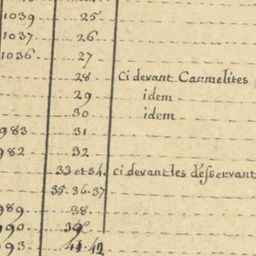 1039 25
1037 26
1036 27
28 Ci devant Carmelites
29 idem
30 idem
983 31
982 32
33 et 34. ci devant les désservant
35. 36. 37
989 38
990 39
93 41 42